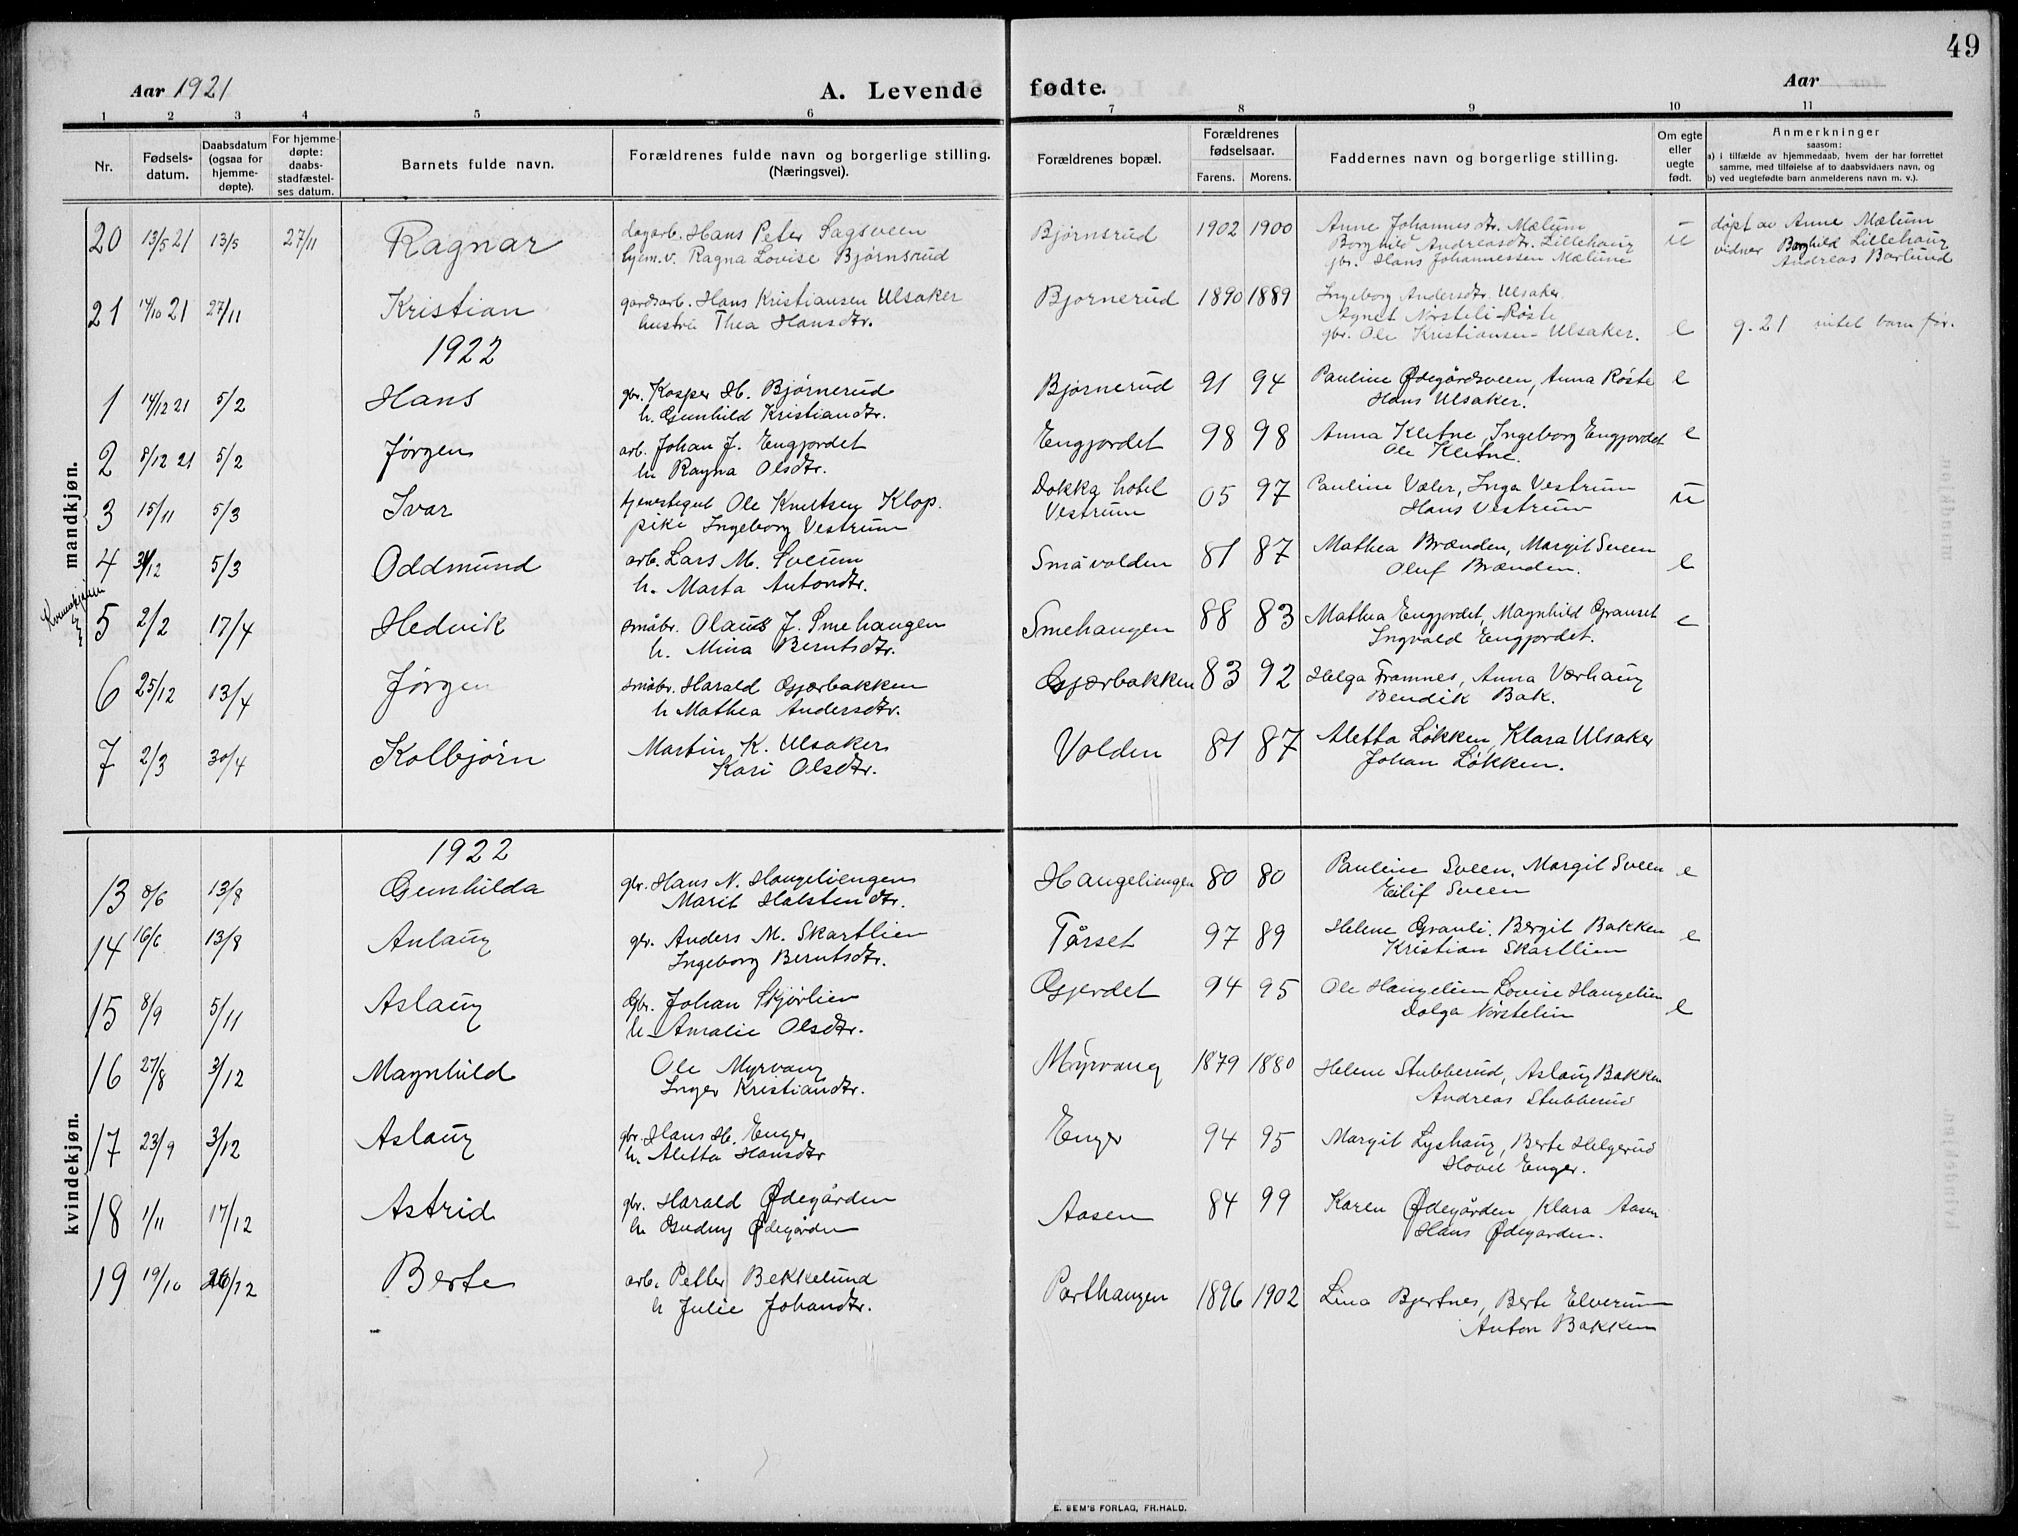 49
Aar 1921 A. Levende fødte. Aar
1 2 3 4 5 6 7 8 9 10 11
Nr. Fødsels-datum. Daabsdatum (ogsaa for hjemme-døpte). For hjemme-døpte: daabs-stadfæstel-ses datum. Barnets fulde navn. Forældrenes fulde navn og borgerlige stilling. (Næringsvei). Forældrenes bopæl. Forældrenes fødselsaar. Farens. Morens. Faddernes navn og borgerlige stilling. Om egte eller uegte født. Anmerkninger saasom: a) i tilfælde av hjemmedaab, hvem der har forrettet samme, med tilføielse af to daabsvidners navn, og b) ved uegtefødte barn anmelderens navn m. v.).
mandkjøn.
20 13/5 21 13/5 27/11 Ragnar dagarb. Hans Peter Sagsveen Bjørnsrud 1902 1900 Anne Johannesdtr. Mælum u døpt av Anne Mælum
hjem.v. Ragna Lovise Bjørnsrud Borghild Andreasdtr. Lillehaug vidner Borghild Lillehaug
gbr. Hans Johannessen Mælum Andreas Barlund
21 14/10 21 27/11 Kristian gardsarb. Hans Kristiansen Ulsaker Bjørnerud 1890 1889 Ingeborg Andersdtr. Ulsaker
hustru Thea Hansdtr. Agnet Nørsteli-Røste
gbr. Ole Kristiansen Ulsaker. e g. 21 intet barn før.
1922
1 14/12 21 5/2 Hans gbr. Kasper H. Bjørnerud Bjørnerud 91 94 Pauline Ødegårdsveen, Anna Røste e
h. Gunhild Kristiandtr. Hans Ulsaker.
2 8/12 21 5/2 Jørgen arb. Johan J. Engjordet Engjordet 98 98 Anna Kletne, Ingeborg Engjordet e
h. Ragna Olsdtr. Ole Kletne.
3 15/11 5/3 Ivar tjenestegut Ole Knutsen Klop. Dokka hotel 05 97 Pauline Væler, Inga Vestrum u
pike Ingeborg Vestrum Vestrum Hans Vestrum
4 31/12 5/3 Oddmund arb. Lars M. Sveum Småvolden 81 87 Mathea Brænden, Margit Sveen e
h. Marta Antondtr. Oluf Brænden.
5 2/2 17/4 Hedvik småbr. Olaus J. Smehaugen Smehaugen 88 83 Mathea Engjordet, Magnhild Granset e
h. Mina Berntsdtr. Ingvald Engjordet.
6 25/12 13/4 Jørgen småbr. Harald Gjærbakken Gjærbakken 83 92 Helga Framnes, Anna Værhaug
h Mathea Andersdtr. Bendik Bak.
7 2/3 30/4 Kolbjørn Martin K. Ulsaker Volden 81 87 Aletta Løkken, Klara Ulsaker
Kari Olsdtr. Johan Løkken.
kvindekjøn.
1922
13 8/6 13/8 Gunhilda gbr. Hans N. Haugeliengen Haugeliengen 80 80 Pauline Sveen, Margit Sveen e
Marit Halstendtr. Eilif Sveen
14 16/6 13/8 Anlaug gbr. Anders M. Skartlien Tårset 97 89 Helene Granli, Bergit Bakken e
Ingeborg Berntsdtr. Kristian Skartlien
15 8/9 5/11 Aslaug Gbr. Johan Skjørlien Gjerdet 94 95 Ole Haugelien Lovise Haugelien
h. Amalie Olsdtr. Dolga Nørstelin e
16 27/8 3/12 Magnhild Ole Myrvang Myrvang 1879 1880 Helene Stubberud, Aslaug Bakken
Inger Kristiandtr. Andreas Stubberud
17 23/9 3/12 Aslaug gbr. Hans H. Enger Enger 94 95 Margit Lyshaug, Berte Helgerud
h. Aletta Hansdtr Hovel Enger.
18 1/11 17/12 Astrid gbr. Harald Ødegården Aasen 84 99 Karen Ødegården, Klara Aasen
h. Gudny Ødegården Hans Ødegarden.
19 19/10 26/12 Berte arb. Petter Bekkelund Parthaugen 1896 1902 Lina Bjertnes, Berte Elverum
h Julie Johandtr. Anton Bakken
E. SEM'S FORLAG, FR.HALD.